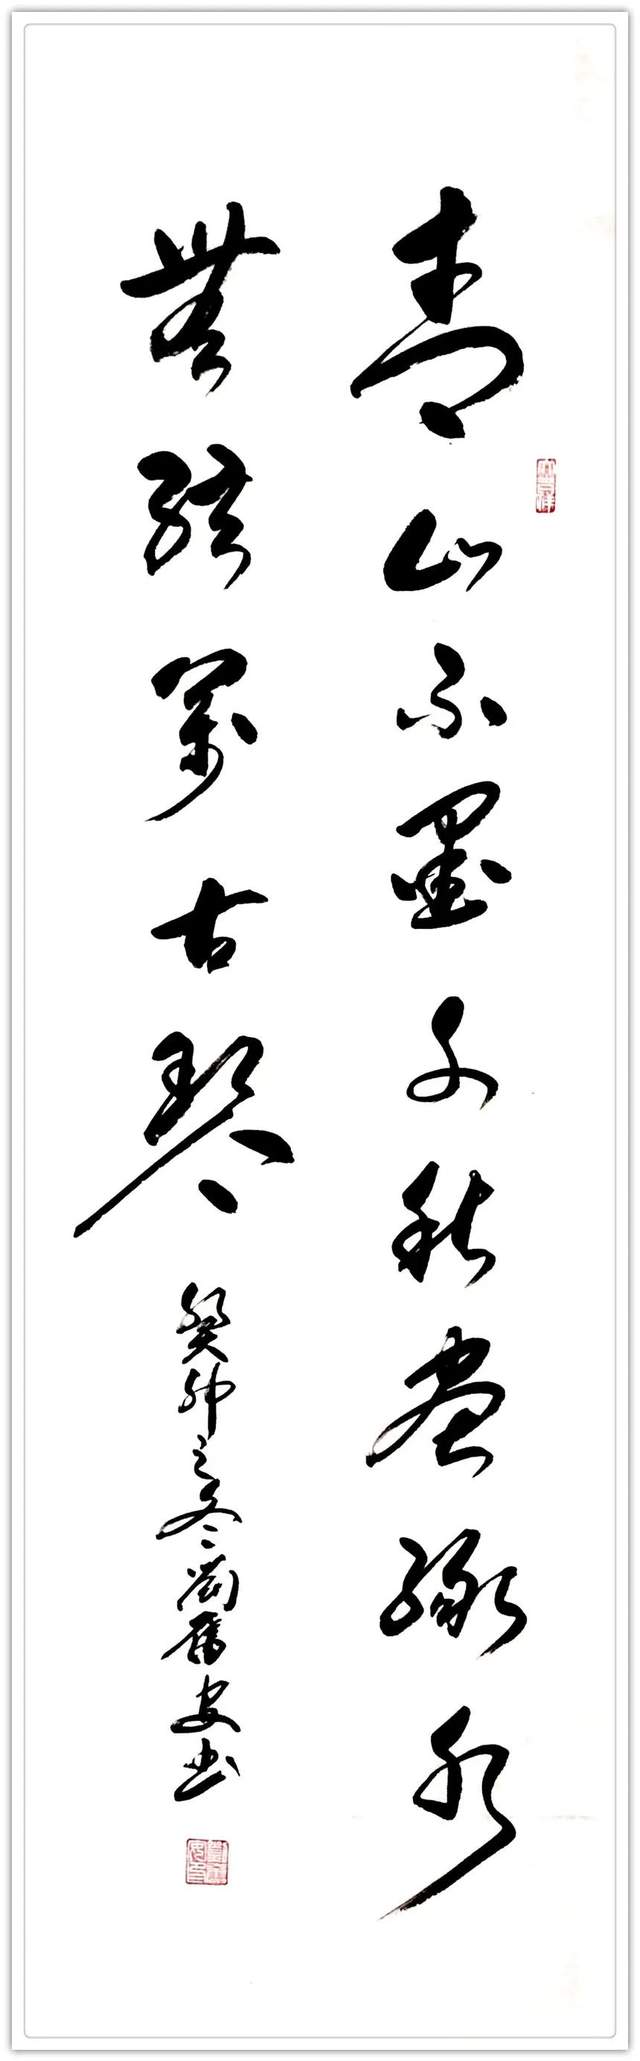 青山不墨千秋画绿水
无弦万古琴
癸卯之冬 安书